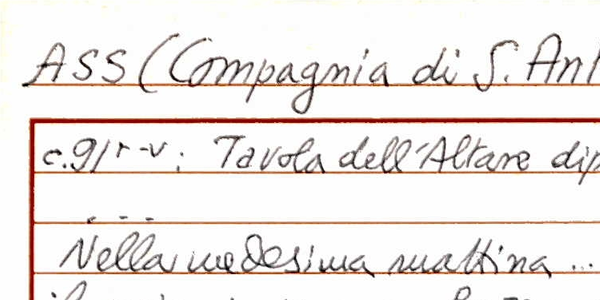 ASS (Compagnia di S. Ant
c. 91 r-v: Tavola dell'Altare dip
. . .
Nella medesima mattina ...